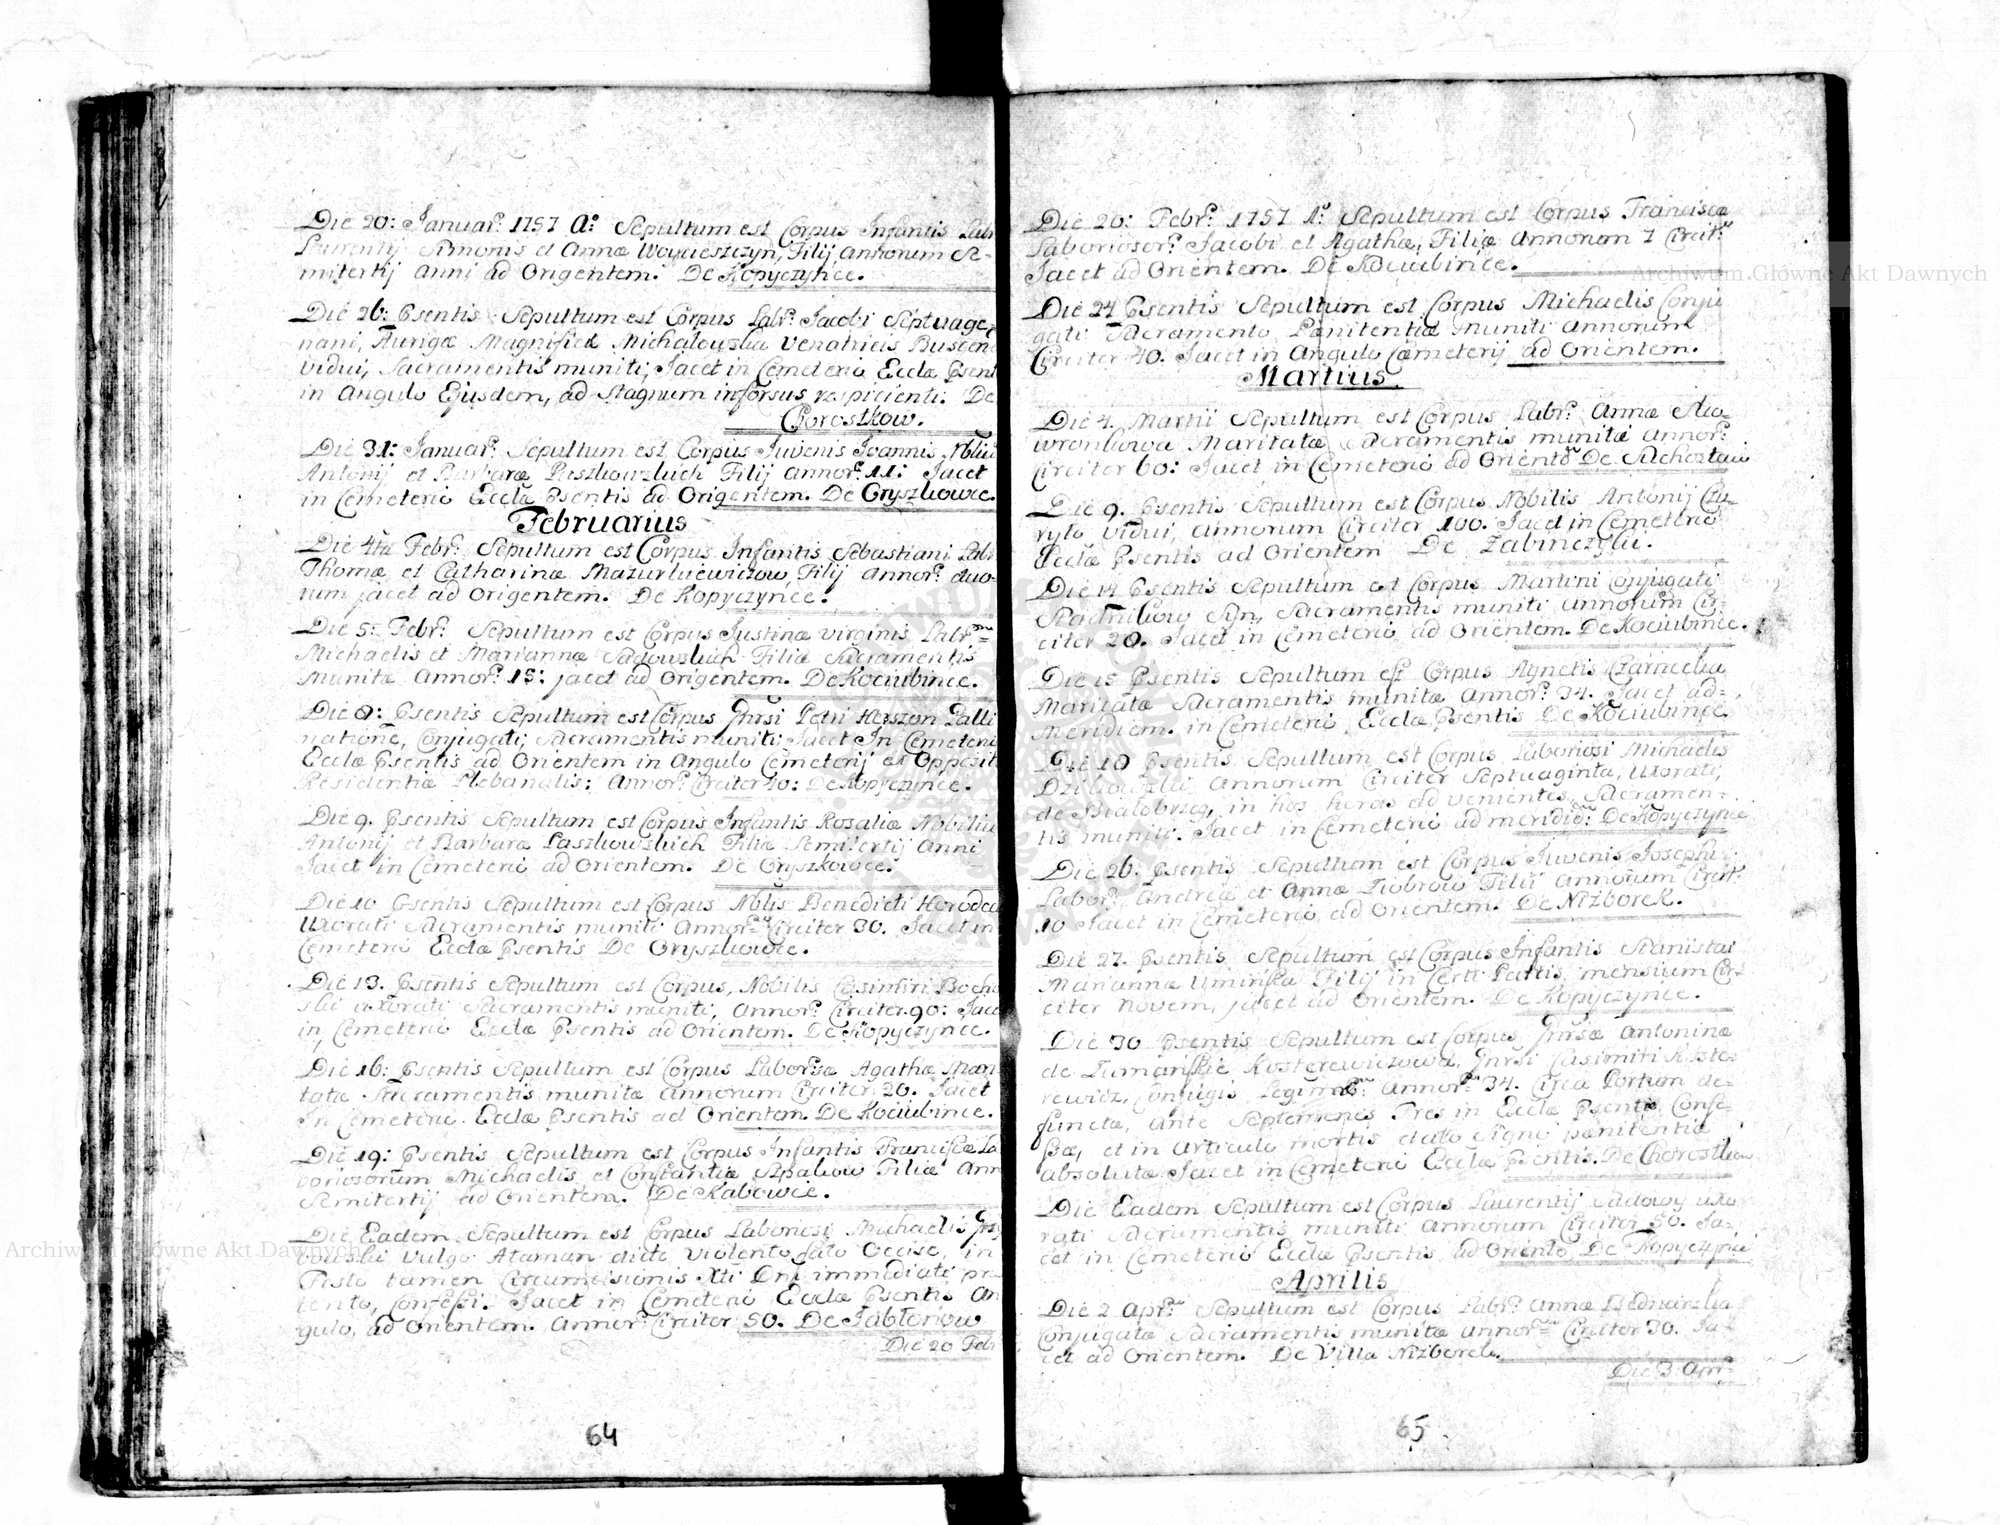 Die 20: Januar. 1757 A° Sepultum est Corpus Infantis Labr
Laurentij Simonis et Annæ Woycieszczyn, Filij annorum Se-
mitertij anni ad Origentem. De Kopyczynce.
Die 26: Psentis Sepultum est Corpus Labr. Jacobi Septuage
nani, Aurigæ Magnificæ Michalowska Venatricis Buscen
vidui, Sacramentis muniti; Jacet in Cemeterio Ecclæ Psent
in Angulo Ejusdem, ad Stagnum inforsus respicienti. De
Chorostkow.
Die 31: Januar. Sepultum est Corpus Juvenis Joannis Nbliū
Antonij et Barbaræ Paszkowskich Filij annor. 11: Jacet
in Cemeterio Ecclæ Psentis ad Origentem. De Gryszkowce.
Februarius
Die 4ta Febr. Sepultum est Corpus Infantis Sebastiani Labr
Thomæ et Catharinæ Mazurkiewiczow, Filij annor. duo-
rum jacet ad Origentem. De Kopyczynce.
Die 5: Febr. Sepultum est Corpus Justinæ virginis Labr.
Michaelis et Mariannæ Sadowskich Filiæ Sacramentis
Munitæ Annor. 15: jacet ad Origentem. De Kociubince.
Die 8: Psentis Sepultum est Corpus Gnrsi Petri Herszon Galli
natione, Conjugati, Sacramentis muniti: Jacet In Cemeterio
Ecclæ Psentis ad Orientem in Angulo Cemeterij ex Opposit
Residentiæ Plebanalis: Annor. Circiter 40: De Kopyczynce.
Die 9. Psentis Sepultum est Corpus Infantis Rosaliæ Nobiliū
Antonij et Barbaræ Paszkowskich Filiæ Semitertij Anni
Jacet in Cemeterio ad Orientem. De Gryszkowce.
Die 10 Psentis Sepultum est Corpus Nblis Benedicti Horodec
Uxorati Sacramentis muniti Annor. Circiter 30. Jacet in
Cemeterio Ecclæ Psentis De Gryszkowce.
Die 13. Psentis Sepultum est Corpus, Nobilis Casimiri Bocho
ski uxorati Sacramentis muniti, Annor. Circiter 90: Jace
in Cemeterio Ecclæ Psentis ad Orientem. De Kopyczynce.
Die 16: Psentis Sepultum est Corpus Laborsæ Agathæ Mari
tatæ Sacramentis munitæ annorum Circiter 20. Jacet
In Cemeterio. Ecclæ Psentis ad Orientem. De Kociubince.
Die 19: Psentis Sepultum est Corpus Infantis Franciscæ La
boriosorum Michaelis et Constantiæ Spaliow Filiæ Ann
Semitertij ad Orientem. De Rakowce.
Die Eadem Sepultum est Corpus Laboriosi Michaelis
vulgo Ataman dicti violento fato Occisi, in
Festo tamen Circumcisionis Xti Dni immediate pr
tento, Confessi. Jacet in Cemeterio Ecclæ Psentis An
gulo, ad Orientem. Annor. Circiter 50. De Jabłonow
Die 20 Febr
64
Die 20: Febr. 1757 A° Sepultum est Corpus Franciscæ
Laboriosor. Jacobi et Agathæ, Filiæ Annorum 7 Circit.
Jacet ad Orientem. De Kociubince.
Die 24 Psentis Sepultum est Corpus Michaelis Conju
gati Sacramento Pænitentiæ muniti annorum
Circiter 40. Jacet in Angulo Cæmeterij ad Orientem.
Martius.
Die 4. Martii Sepultum est Corpus Labr. Annæ Ska-
wronkowa Maritatæ Sacramentis munitæ annor.
Circiter 60: Jacet in Cemeterio ad Orientē De Suchostaw
Die 9. Psentis Sepultum est Corpus Nobilis Antonij Czu
ryło, vidui, annorum Circiter 100. Jacet in Cemeterio
Ecclæ Psentis ad Orientem De Zabinczyki.
Die 14 Psentis Sepultum est Corpus Martini Conjugati
Stadnikow Syn, Sacramentis muniti annorum Cir-
citer 20. Jacet in Cemeterio ad Orientem. De Kociubince.
Die 15 Psentis Sepultum est Corpus Agnetis Czarnecka
Maritatæ Sacramentis munitæ Annor. 34. Jacet ad-
Meridiem. in Cemeterio Ecclæ Psentis De Kociubince
Die 18 Psentis Sepultum est Corpus Laboriosi Michaelis
Annorum Circiter Septuaginta, Uxorati,
de Białobrzeg, in has horas ad venientes, Sacramen-
tis muniti. Jacet in Cemeterio ad meridiē: De Kopyczynce
Die 26. Psentis Sepultum est Corpus Juvenis Josephi
Labor. Andreæ et Annæ Ziobrow Filii Annorum Circit.
10 Jacet in Cemeterio ad Orientem. De Niżborek.
Die 27. Psentis Sepultum est Corpus Infantis Stanislai
Marianna Uminska Filij in Certi Patris, mensium Cir-
citer Novem, jacet ad Orientem. De Kopyczynce.
Die 30 Psentis Sepultum est Corpus Gnrsæ Antoninæ
de Tumanskie Kosterewiczowa, Gnrsi Casimiri Koste-
rewicz, Conjugis Legimæ Annor. 34. Circa Partum de-
functæ, ante Septemenes Tres in Ecclæ Psenti Confe-
ssæ, et in Articulo mortis dato Signo pænitentiæ
absolutæ. Jacet in Cemeterio Ecclæ Psentis. De Chorostkow
Die Eadem Sepultum est Corpus Laurentij Sadowy uxo
rati Sacramentis muniti annorum Circiter 50. Ja-
cet in Cemeterio Ecclæ Psentis ad Orientē, De Kopyczynce
Aprilis
Die 2 Apr. Sepultum est Corpus Labr. Annæ Bednarska
Conjugatæ Sacramentis munitæ annor. Circiter 30. Ja-
cet ad Orientem. De Villa Niżborek.
Die 3 Apr.
65
Archiwum Główne Akt Dawnych
Archiwum Główne Akt Dawnych